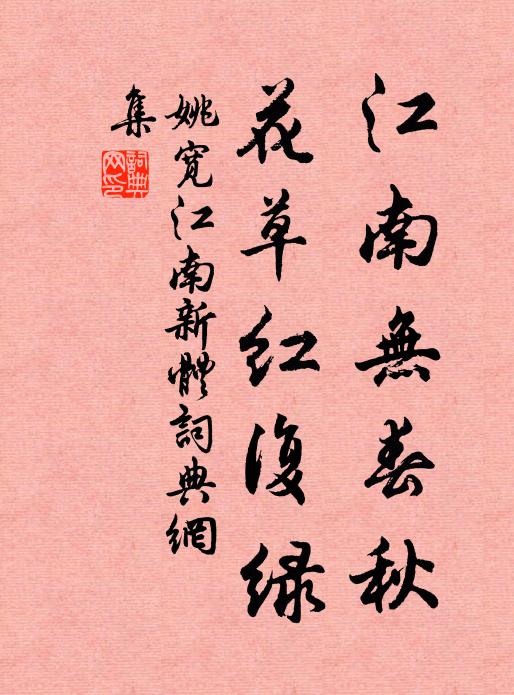 江南無春秋
花草红復绿
姚寬江南新體詞典網
集
詞典網印